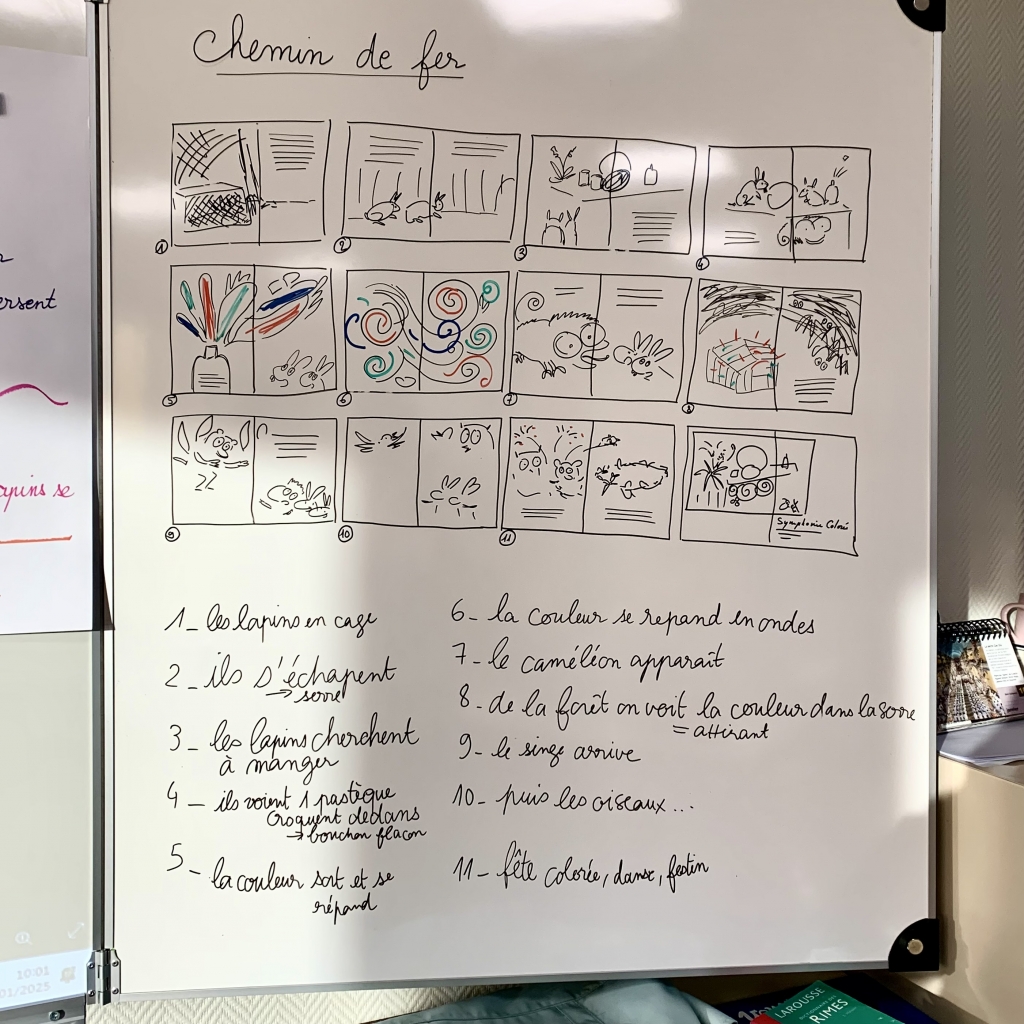 Chemin de fer
1
2
3
4
5
6
7
8
9
10
11
Symphonie Coloré
1_ les lapins en cage
2_ ils s'échapent
→ serre
3_ les lapins cherchent
à manger
4_ ils voient 1 pastèque
croquent dedans
→ bouchon flacon
5_ la couleur sort et se
répand
6_ la couleur se repand en ondes
7_ le caméléon apparaît
8_ de la forêt on voit la couleur dans la serre
= attirant
9_ le singe arrive
10_ puis les oiseaux...
11_ fête colorée, danse, festin
ersent
apins se
10:01
01/2025
LAROUSSE
RIMES